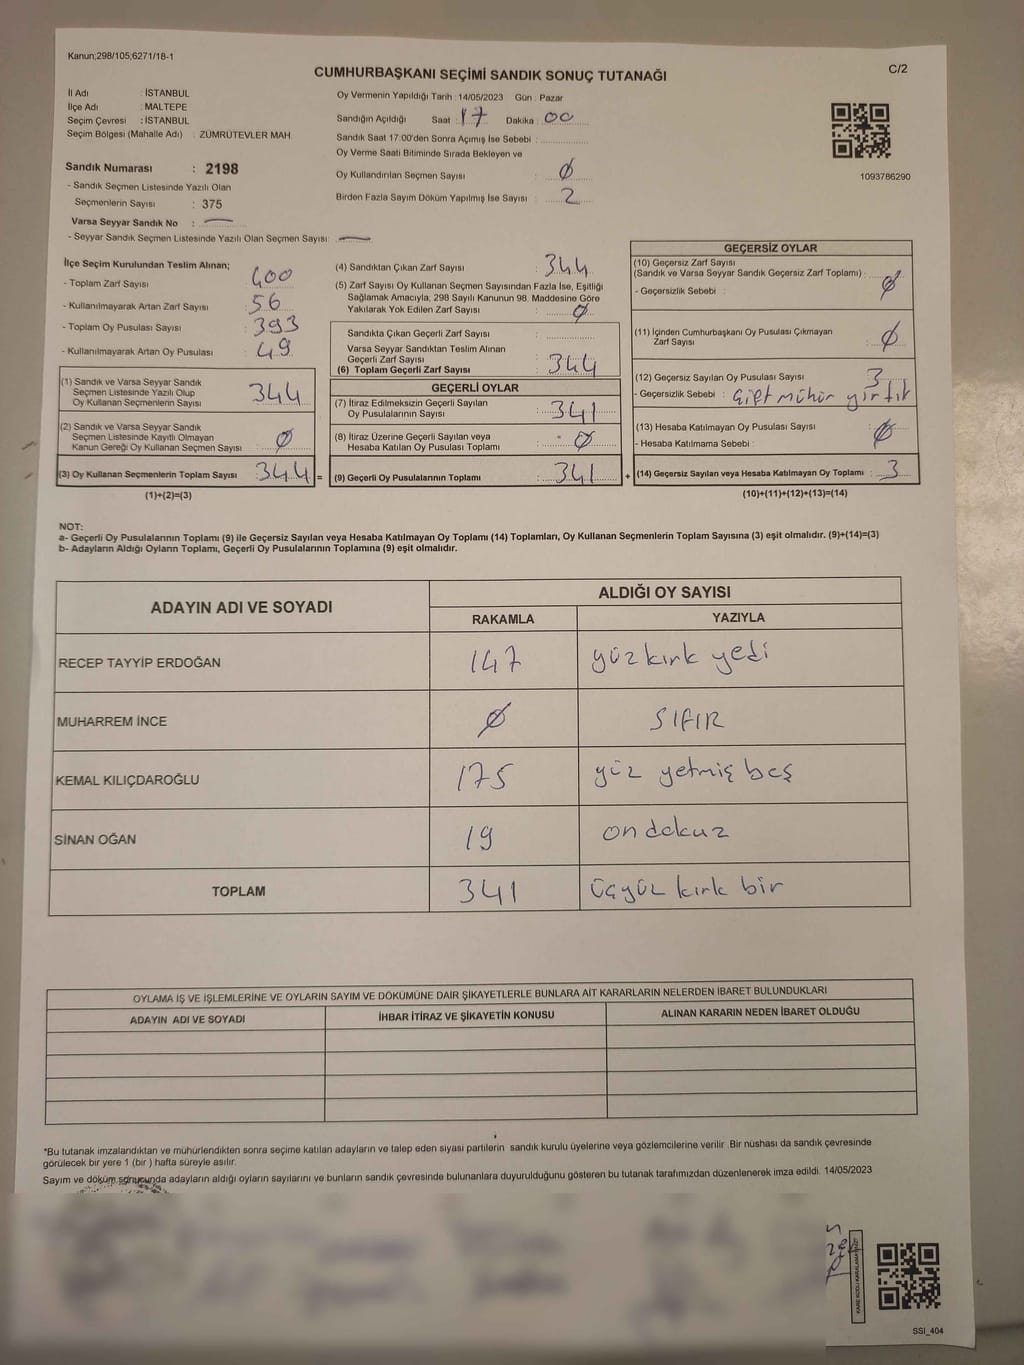 Kanun;298/105;6271/18-1
CUMHURBAŞKANI SEÇİMİ SANDIK SONUÇ TUTANAĞI
C/2
İl Adı : İSTANBUL
İlçe Adı : MALTEPE
Seçim Çevresi : İSTANBUL
Seçim Bölgesi (Mahalle Adı) : ZÜMRÜTEVLER MAH
Sandık Numarası : 2198
- Sandık Seçmen Listesinde Yazılı Olan
Seçmenlerin Sayısı : 375
Varsa Seyyar Sandık No :
- Seyyar Sandık Seçmen Listesinde Yazılı Olan Seçmen Sayısı :
Oy Vermenin Yapıldığı Tarih : 14/05/2023 Gün : Pazar
Sandığın Açıldığı Saat : 17 Dakika : 00
Sandık Saat 17.00'den Sonra Açımış İse Sebebi :
Oy Verme Saati Bitiminde Sırada Bekleyen ve
Oy Kullandırılan Seçmen Sayısı : 0
Birden Fazla Sayım Döküm Yapılmış İse Sayısı : 2
1093786290
İlçe Seçim Kurulundan Teslim Alınan;
- Toplam Zarf Sayısı : 400
- Kullanılmayarak Artan Zarf Sayısı : 56
- Toplam Oy Pusulası Sayısı : 393
- Kullanılmayarak Artan Oy Pusulası : 49
(1) Sandık ve Varsa Seyyar Sandık
Seçmen Listesinde Yazılı Olup
Oy Kullanan Seçmenlerin Sayısı : 344
(2) Sandık ve Varsa Seyyar Sandık
Seçmen Listesinde Kayıtlı Olmayan
Kanun Gereği Oy Kullanan Seçmen Sayısı : 0
(3) Oy Kullanan Seçmenlerin Toplam Sayısı : 344 =
(1)+(2)=(3)
(4) Sandıktan Çıkan Zarf Sayısı : 344
(5) Zarf Sayısı Oy Kullanan Seçmen Sayısından Fazla İse, Eşitliği
Sağlamak Amacıyla; 298 Sayılı Kanunun 98. Maddesine Göre
Yakılarak Yok Edilen Zarf Sayısı : 0
Sandıkta Çıkan Geçerli Zarf Sayısı :
Varsa Seyyar Sandıktan Teslim Alınan
Geçerli Zarf Sayısı :
(6) Toplam Geçerli Zarf Sayısı : 344
GEÇERLİ OYLAR
(7) İtiraz Edilmeksizin Geçerli Sayılan
Oy Pusulalarının Sayısı : 341
(8) İtiraz Üzerine Geçerli Sayılan veya
Hesaba Katılan Oy Pusulası Toplamı : 0
(9) Geçerli Oy Pusulalarının Toplamı : 341 +
GEÇERSİZ OYLAR
(10) Geçersiz Zarf Sayısı
(Sandık ve Varsa Seyyar Sandık Geçersiz Zarf Toplamı) : 0
- Geçersizlik Sebebi :
(11) İçinden Cumhurbaşkanı Oy Pusulası Çıkmayan
Zarf Sayısı : 0
(12) Geçersiz Sayılan Oy Pusulası Sayısı : 3
- Geçersizlik Sebebi : Çift mühür yırtık
(13) Hesaba Katılmayan Oy Pusulası Sayısı : 0
- Hesaba Katılmama Sebebi :
(14) Geçersiz Sayılan veya Hesaba Katılmayan Oy Toplamı : 3
(10)+(11)+(12)+(13)=(14)
NOT:
a- Geçerli Oy Pusulalarının Toplamı (9) ile Geçersiz Sayılan veya Hesaba Katılmayan Oy Toplamı (14) Toplamları, Oy Kullanan Seçmenlerin Toplam Sayısına (3) eşit olmalıdır. (9)+(14)=(3)
b- Adayların Aldığı Oyların Toplamı, Geçerli Oy Pusulalarının Toplamına (9) eşit olmalıdır.
ADAYIN ADI VE SOYADI
ALDIĞI OY SAYISI
RAKAMLA YAZIYLA
RECEP TAYYİP ERDOĞAN 147 yüzkırk yedi
MUHARREM İNCE 0 SIFIR
KEMAL KILIÇDAROĞLU 175 yüz yetmiş beş
SİNAN OĞAN 19 on dokuz
TOPLAM 341 üçyüz kırk bir
OYLAMA İŞ VE İŞLEMLERİNE VE OYLARIN SAYIM VE DÖKÜMÜNE DAİR ŞİKAYETLERLE BUNLARA AİT KARARLARIN NELERDEN İBARET BULUNDUKLARI
ADAYIN ADI VE SOYADI İHBAR İTİRAZ VE ŞİKAYETİN KONUSU ALINAN KARARIN NEDEN İBARET OLDUĞU
*Bu tutanak imzalandıktan ve mühürlendikten sonra seçime katılan adayların ve talep eden siyasi partilerin sandık kurulu üyelerine veya gözlemcilerine verilir. Bir nüshası da sandık çevresinde
görülecek bir yere 1 (bir ) hafta süreyle asılır.
Sayım ve döküm sonucunda adayların aldığı oyların sayılarını ve bunların sandık çevresinde bulunanlara duyurulduğunu gösteren bu tutanak tarafımızdan düzenlenerek imza edildi. 14/05/2023
SSI_404